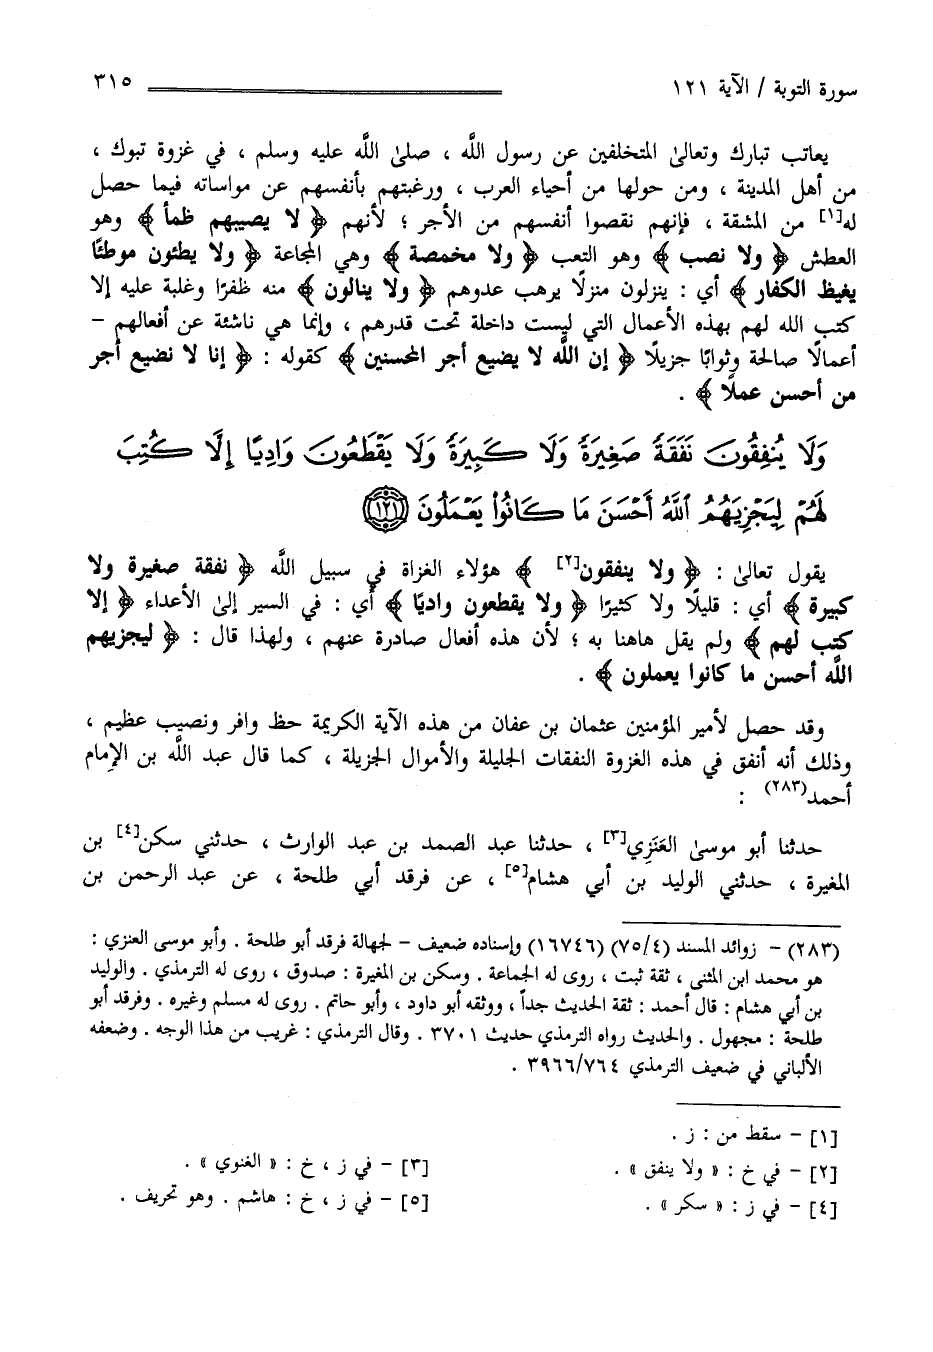 سورة التوبة / الآية ١٢١ ٣١٥
يعاتب تبارك وتعالىٰ المتخلفين عن رسول اللَّه ، صلىٰ اللَّه عليه وسلم ، في غزوة تبوك ،
من أهل المدينة ، ومن حولها من أحياء العرب ، ورغبتهم بأنفسهم عن مواساته فيما حصل
له[١] من المشقة ، فإنهم نقصوا أنفسهم من الأجر ؛ لأنهم ﴿ لا يصيبهم ظمأ ﴾ وهو
العطش ﴿ ولا نصب ﴾ وهو التعب ﴿ ولا مخمصة ﴾ وهي المجاعة ﴿ ولا يطئون موطئًا
يغيظ الكفار ﴾ أي : ينزلون منزلًا يرهب عدوهم ﴿ ولا ينالون ﴾ منه ظفرًا وغلبة عليه إلا
كتب الله لهم بهذه الأعمال التي ليست داخلة تحت قدرهم ، وإنما هي ناشئة عن أفعالهم –
أعمالًا صالحة وثوابًا جزيلًا ﴿ إن اللَّه لا يضيع أجر المحسنين ﴾ كقوله : ﴿ إنا لا نضيع أجر
من أحسن عملًا ﴾ .
وَلَا يُنفِقُونَ نَفَقَةً صَغِيرَةً وَلَا كَبِيرَةً وَلَا يَقْطَعُونَ وَادِيًا إِلَّا كُتِبَ
لَهُمْ لِيَجْزِيَهُمُ ٱللَّهُ أَحْسَنَ مَا كَانُوا۟ يَعْمَلُونَ ١٢١
يقول تعالىٰ : ﴿ ولا ينفقون[٢] ﴾ هؤلاء الغزاة في سبيل اللَّه ﴿ نفقة صغيرة ولا
كبيرة ﴾ أي : قليلًا ولا كثيرًا ﴿ ولا يقطعون واديًا ﴾ أي : في السير إلىٰ الأعداء ﴿ إلا
كتب لهم ﴾ ولم يقل هاهنا به ؛ لأن هذه أفعال صادرة عنهم ، ولهذا قال : ﴿ ليجزيهم
اللَّه أحسن ما كانوا يعملون ﴾ .
وقد حصل لأمير المؤمنين عثمان بن عفان من هذه الآية الكريمة حظ وافر ونصيب عظيم ،
وذلك أنه أنفق في هذه الغزوة النفقات الجليلة والأموال الجزيلة ، كما قال عبد اللَّه بن الإمام
أحمد(٢٨٣) :
حدثنا أبو موسىٰ العَنَزِي[٣] ، حدثنا عبد الصمد بن عبد الوارث ، حدثني سكن[٤] بن
المغيرة ، حدثني الوليد بن أبي هشام[٥] ، عن فرقد أبي طلحة ، عن عبد الرحمن بن
(٢٨٣) – زوائد المسند (٧٥/٤) (١٦٧٤٦) وإسناده ضعيف – لجهالة فرقد أبو طلحة . وأبو موسى العنزي :
هو محمد ابن المثنى ، ثقة ثبت ، روى له الجماعة . وسكن بن المغيرة : صدوق ، روى له الترمذي . والوليد
بن أبي هشام : قال أحمد : ثقة الحديث جداً ، ووثقه أبو داود ، وأبو حاتم . روى له مسلم وغيره . وفرقد أبو
طلحة : مجهول . والحديث رواه الترمذي حديث ٣٧٠١ . وقال الترمذي : غريب من هذا الوجه . وضعفه
الألباني في ضعيف الترمذي ٣٩٦٦/٧٦٤ .
[١] – سقط من : ز .
[٢] – في خ : « ولا ينفق » . [٣] – في ز ، خ : « الغنوي » .
[٤] – في ز : « سكر » . [٥] – في ز ، خ : هاشم . وهو تحريف .